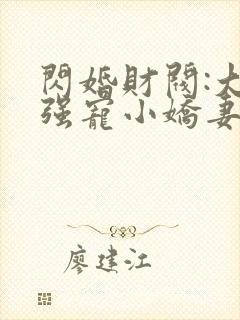 閃婚財閥:大
强寵小嬌妻
廖建江